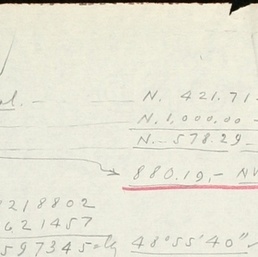 al. — N. 421.71
N. 1,000.00 —
N. — 578.29 —
880.19, — NW
218802
621457
597345 = lg 48° 55' 40"